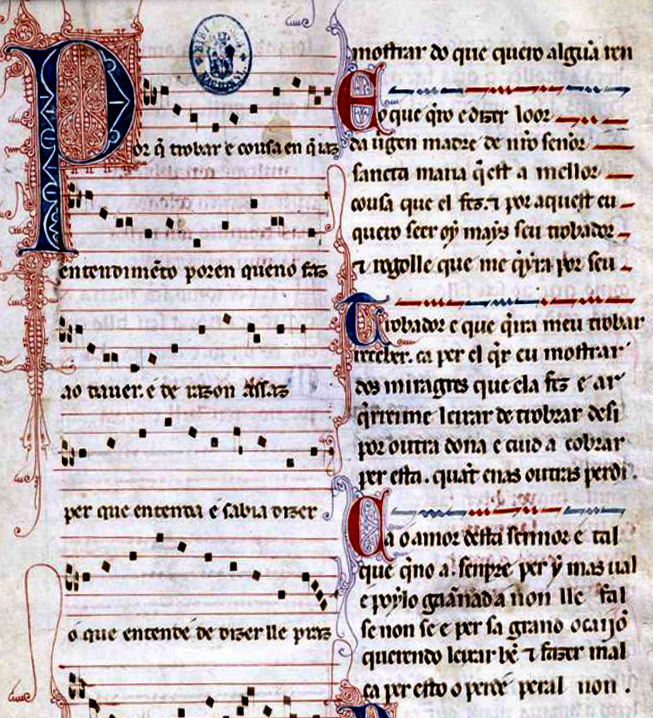 Por q̃ trobar e cousa en q̃ iaz
entendimẽto poren queno faz
ao dauer. e de razon assaz
per que entenda e sabia dizer
o que entende de dizer lle praz
mostrar do que quero algũa ren
E o que q̃ro e dizer loor
da uirgen madre de nr̃o sennor
sancta maria q̃ est a mellor
cousa que el fez. ⁊ por aquest eu
quero seer oy mays seu trobador
⁊ rogolle que me q̃yra por seu
Trobador e que q̃ira meu trobar
receber. ca per el q̃r eu mostrar
dos miragres que ela fez e ar
q̃rreime leixar de trobrar desi
por outra dona e cuid a cobrar
per esta. quãt enas outras perdi.
Ca o amor desta sennor e tal
que q̃no a. senpre per y mas ual
e poylo gaãnad a non lle fal
se non se e per sa grano ocaijõ
querendo leixar bẽ ⁊ fazer mal
ca per esto o perde peral non.